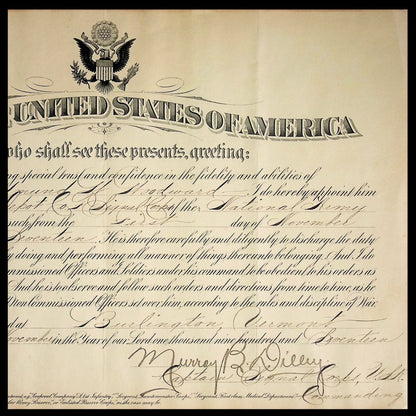 UNITED STATES OF AMERICA
who shall see these presents, greeting:
ing special trust and confidence in the fidelity and abilities of
Woodward I do hereby appoint him
of the National Army
such from the First day of November
Seventeen. He is therefore carefully and diligently to discharge the duty
by doing and performing all manner of things thereunto belonging. And I do
ommissioned Officers and Soldiers under his command to be obedient to his orders as
And he is to observe and follow such orders and directions from time to time, as he
Non Commissioned Officers set over him, according to the rules and discipline of War.
d at Burlington, Vermont
November in the Year of our Lord one thousand nine hundred and Seventeen
Murray B. Dilley
Captain Signal Corps, U.S.R.
Commanding